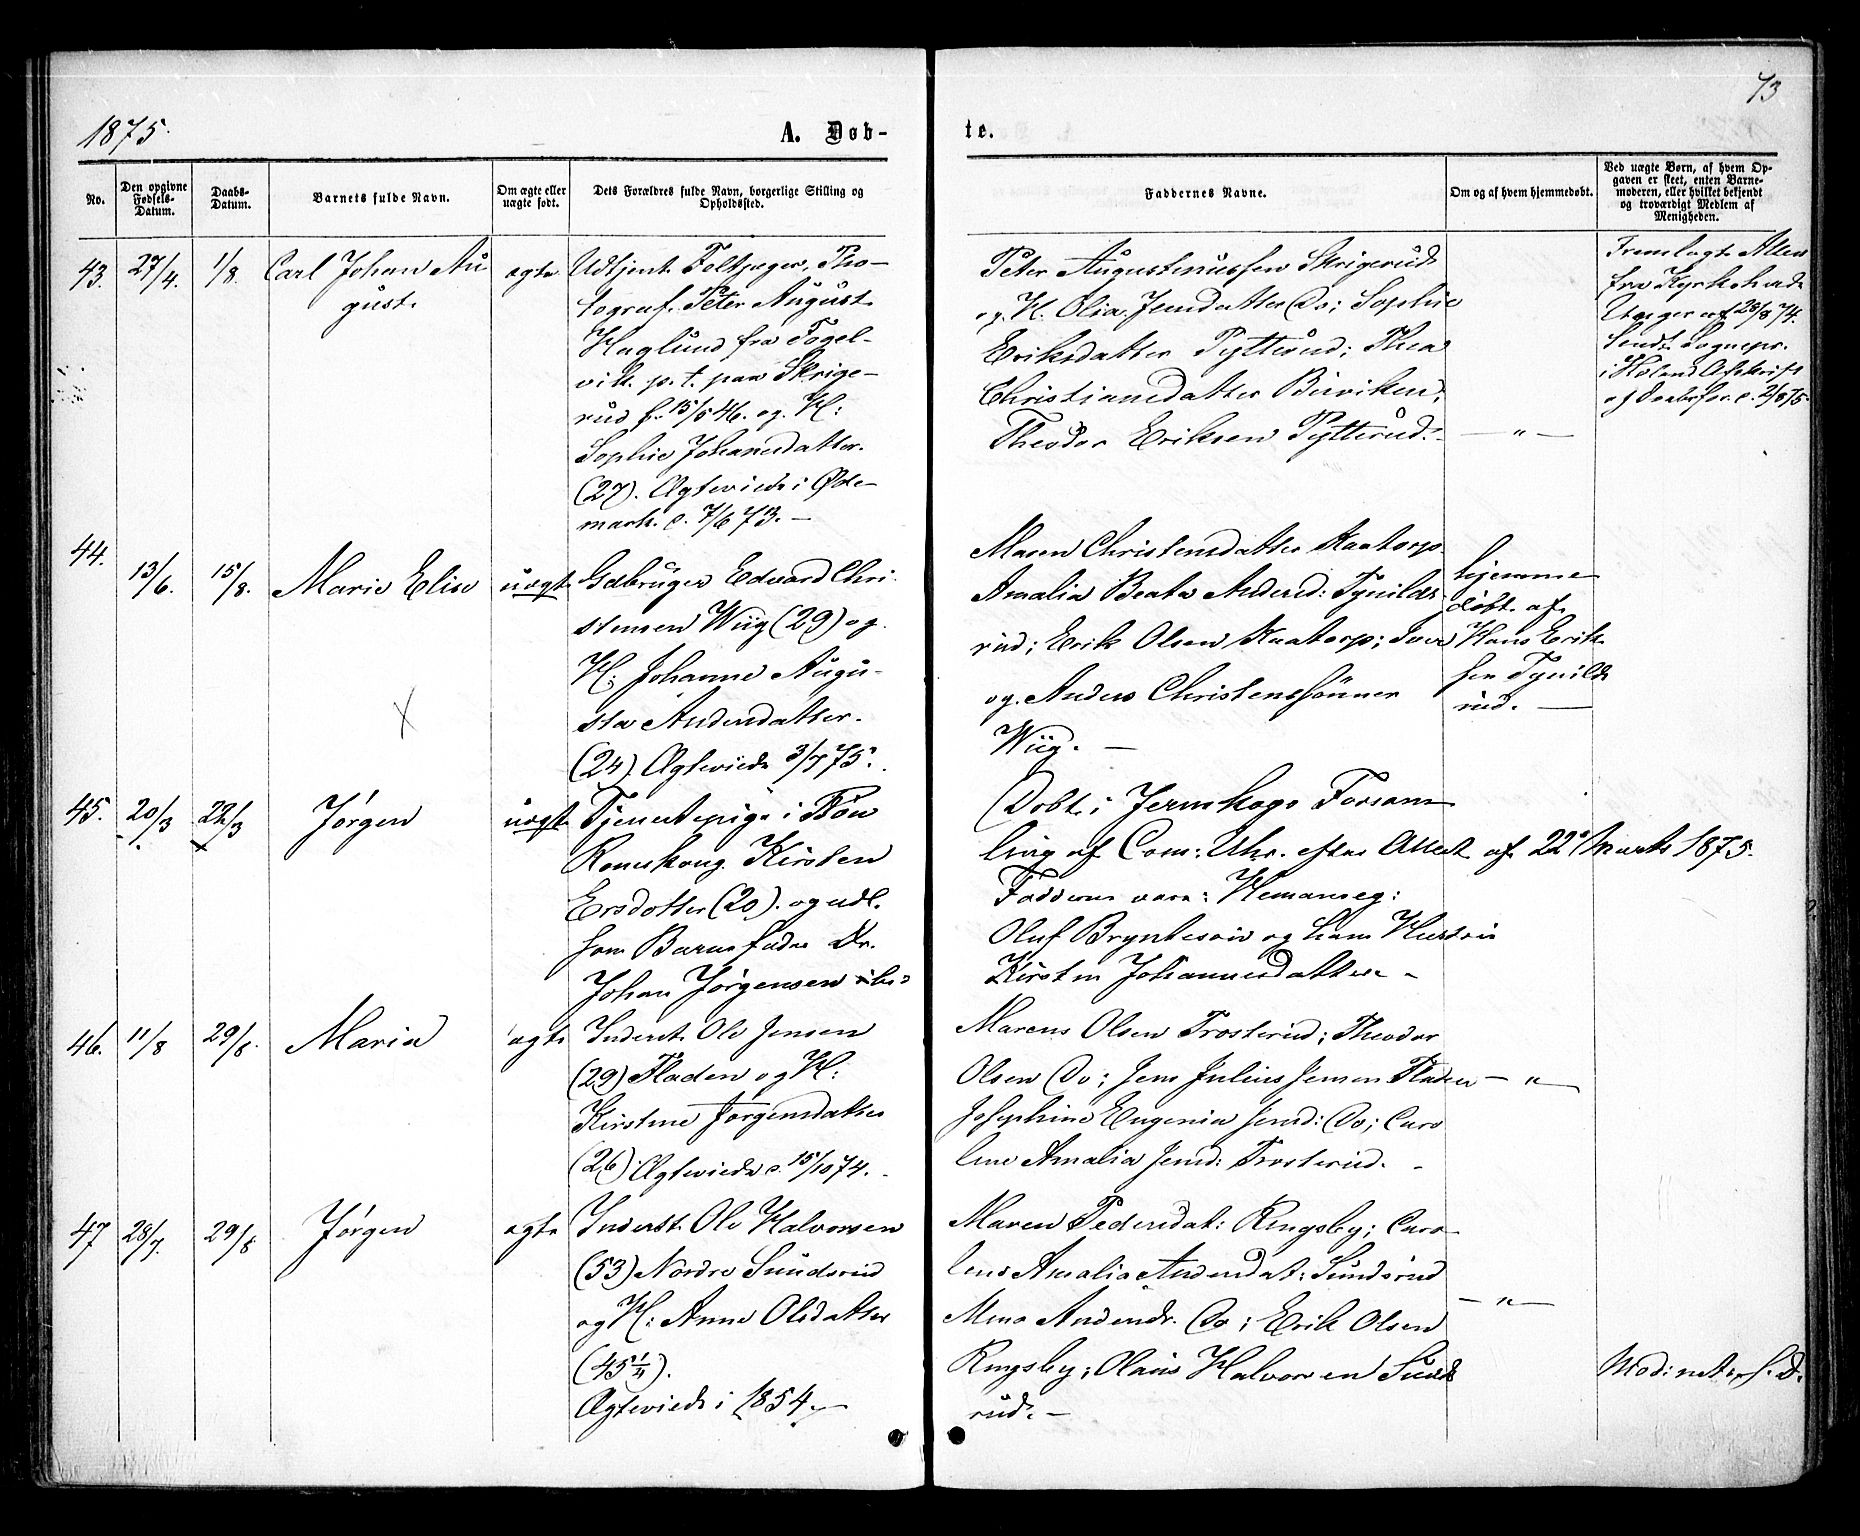 73
1875.
A. Døb-
te.
No.
Den opgivne
Fødsels-
Datum.
Daabs-
Datum.
Barnets fulde Navn.
Om ægte eller
uægte født.
Dets Forældres fulde Navn, borgerlige Stilling og
Opholdssted.
Faddernes Navne.
Om og af hvem hjemmedøbt.
Ved uægte Børn, af hvem Op-
gaven er skeet, enten Barne-
moderen, eller hvilket bekjendt
og troværdigt Medlem af
Menigheden.
43. 27/4. 1/8. Carl Johan Au
gust.
ægte
Udtjent Feltjæger, Pho-
tograf. Peter August
Haglund fra Fogel-
vik. p. t. paa Skrige-
rud f. 15/5 46. og H:
Sophie Johansdatter.
(27). Ægteviede i Øde-
mark. d. 7/6 73. —
Peter Augustinussen Skrigerud
og H. Olia Jensdatter Do; Sophie
Eriksdatter Pytterud; Thea
Christiansdatter Burviken;
Theodor Eriksen Pytterud. — " —
Fremlagt Attest
fra Kyrkoherde
af 20/8 74.
Sendt Sognepr.
i Høland Afskrift
af Daabs 2/8 75
44. 13/6. 15/8. Marie Elise
uægte
Gdbruger Edvard Chri-
stensen Wiig (29) og
H: Johanne Augu-
sta Andersdatter.
(24) Ægteviede 3/7 75.
Maren Christensdatter Kaatorp
Amalia Beate Andersd: Tynilds-
rud; Erik Olsen Kaatorp;
og Anders Christenssønner
Wiig. —
hjemme
døbt af
Hans Erik
sen Tynilds
rud. —
X
45. 20/3 22/3 Jørgen
uægte
Tjenestepige i Bøn
Romskoug Kirsten
Ersdatter (20). og udl.
som Barnefader Dr.
Johan Jørgensen
Døbt i Jernskogs Forsam
ling af Com: Uhr. efter Attest af 22 Marts 1875.
Fadderne vare: Hemanseg:
Oluf Bryntesøn og hans Hustru
Kirstin Johannesdatter -
46. 11/8 29/8. Maria
ægte
Inderst Ole Jensen
(29) Fladen og H:
Kirstine Jørgensdatter
(26) Ægteviede d. 15/10 74.
Marcus Olsen Trosterud; Theodor
Olsen Do; Jens Julius Jensen Fladen — " —
Josephine Eugenia Jensd: Do; Caro
line Amalia Jensd: Trosterud. -
47 28/7. 29/8 Jørgen
ægte
Inderst Ole Halvorsen
(53) Nordre Sundsrud
og H: Anne Olsdatter
(45 1/4).
Ægteviede i 1854. —
Maren Pedersdat: Kingsby; Caro-
line Amalia Andersdat: Sundsrud
Mina Andersdr. Do; Erik Olsen
Kingsby; Olaus Halvorsen Sunds
rud. —
— " —